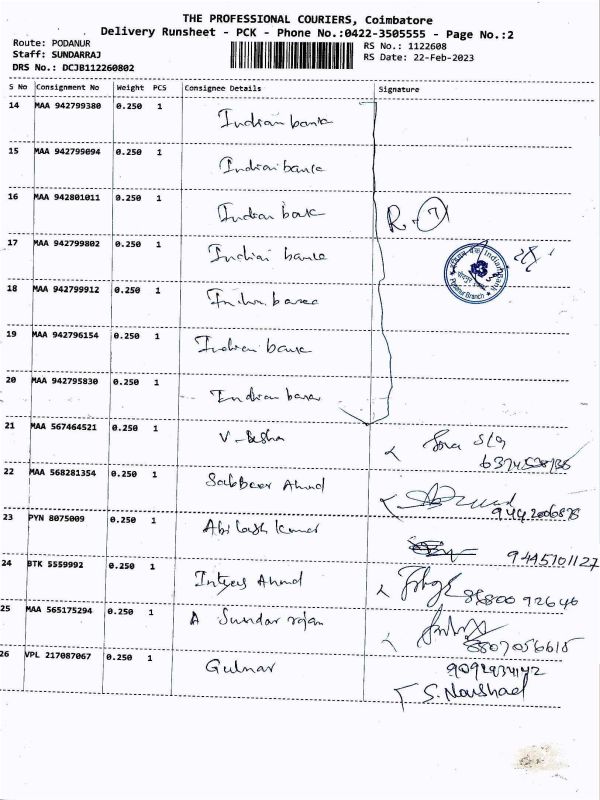 THE PROFESSIONAL COURIERS, Coimbatore
Delivery Runsheet - PCK - Phone No.:0422-3505555 - Page No.:2
Route: PODANUR
Staff: SUNDARRAJ
DRS No.: DCJB112260802
RS No.: 1122608
RS Date: 22-Feb-2023
S No Consignment No Weight PCS Consignee Details Signature
14 MAA 942799380 0.250 1 Indian bank
15 MAA 942799094 0.250 1 Indian bank
16 MAA 942801011 0.250 1 Indian bank
17 MAA 942799802 0.250 1 Indian bank
Indian Bank
Podanur Branch
18 MAA 942799912 0.250 1 Indian bank
19 MAA 942796154 0.250 1 Indian bank
20 MAA 942795830 0.250 1 Indian bank
21 MAA 567464521 0.250 1
22 MAA 568281354 0.250 1 Sabbeer Ahmd
23 PYN 8075009 0.250 1 Abilash kumar
9445101127
24 BTK 5559992 0.250 1 Ahmd
25 MAA 565175294 0.250 1 A Sundar rajan
8807056615
26 VPL 217087067 0.250 1 Gulnar
S. Noushad